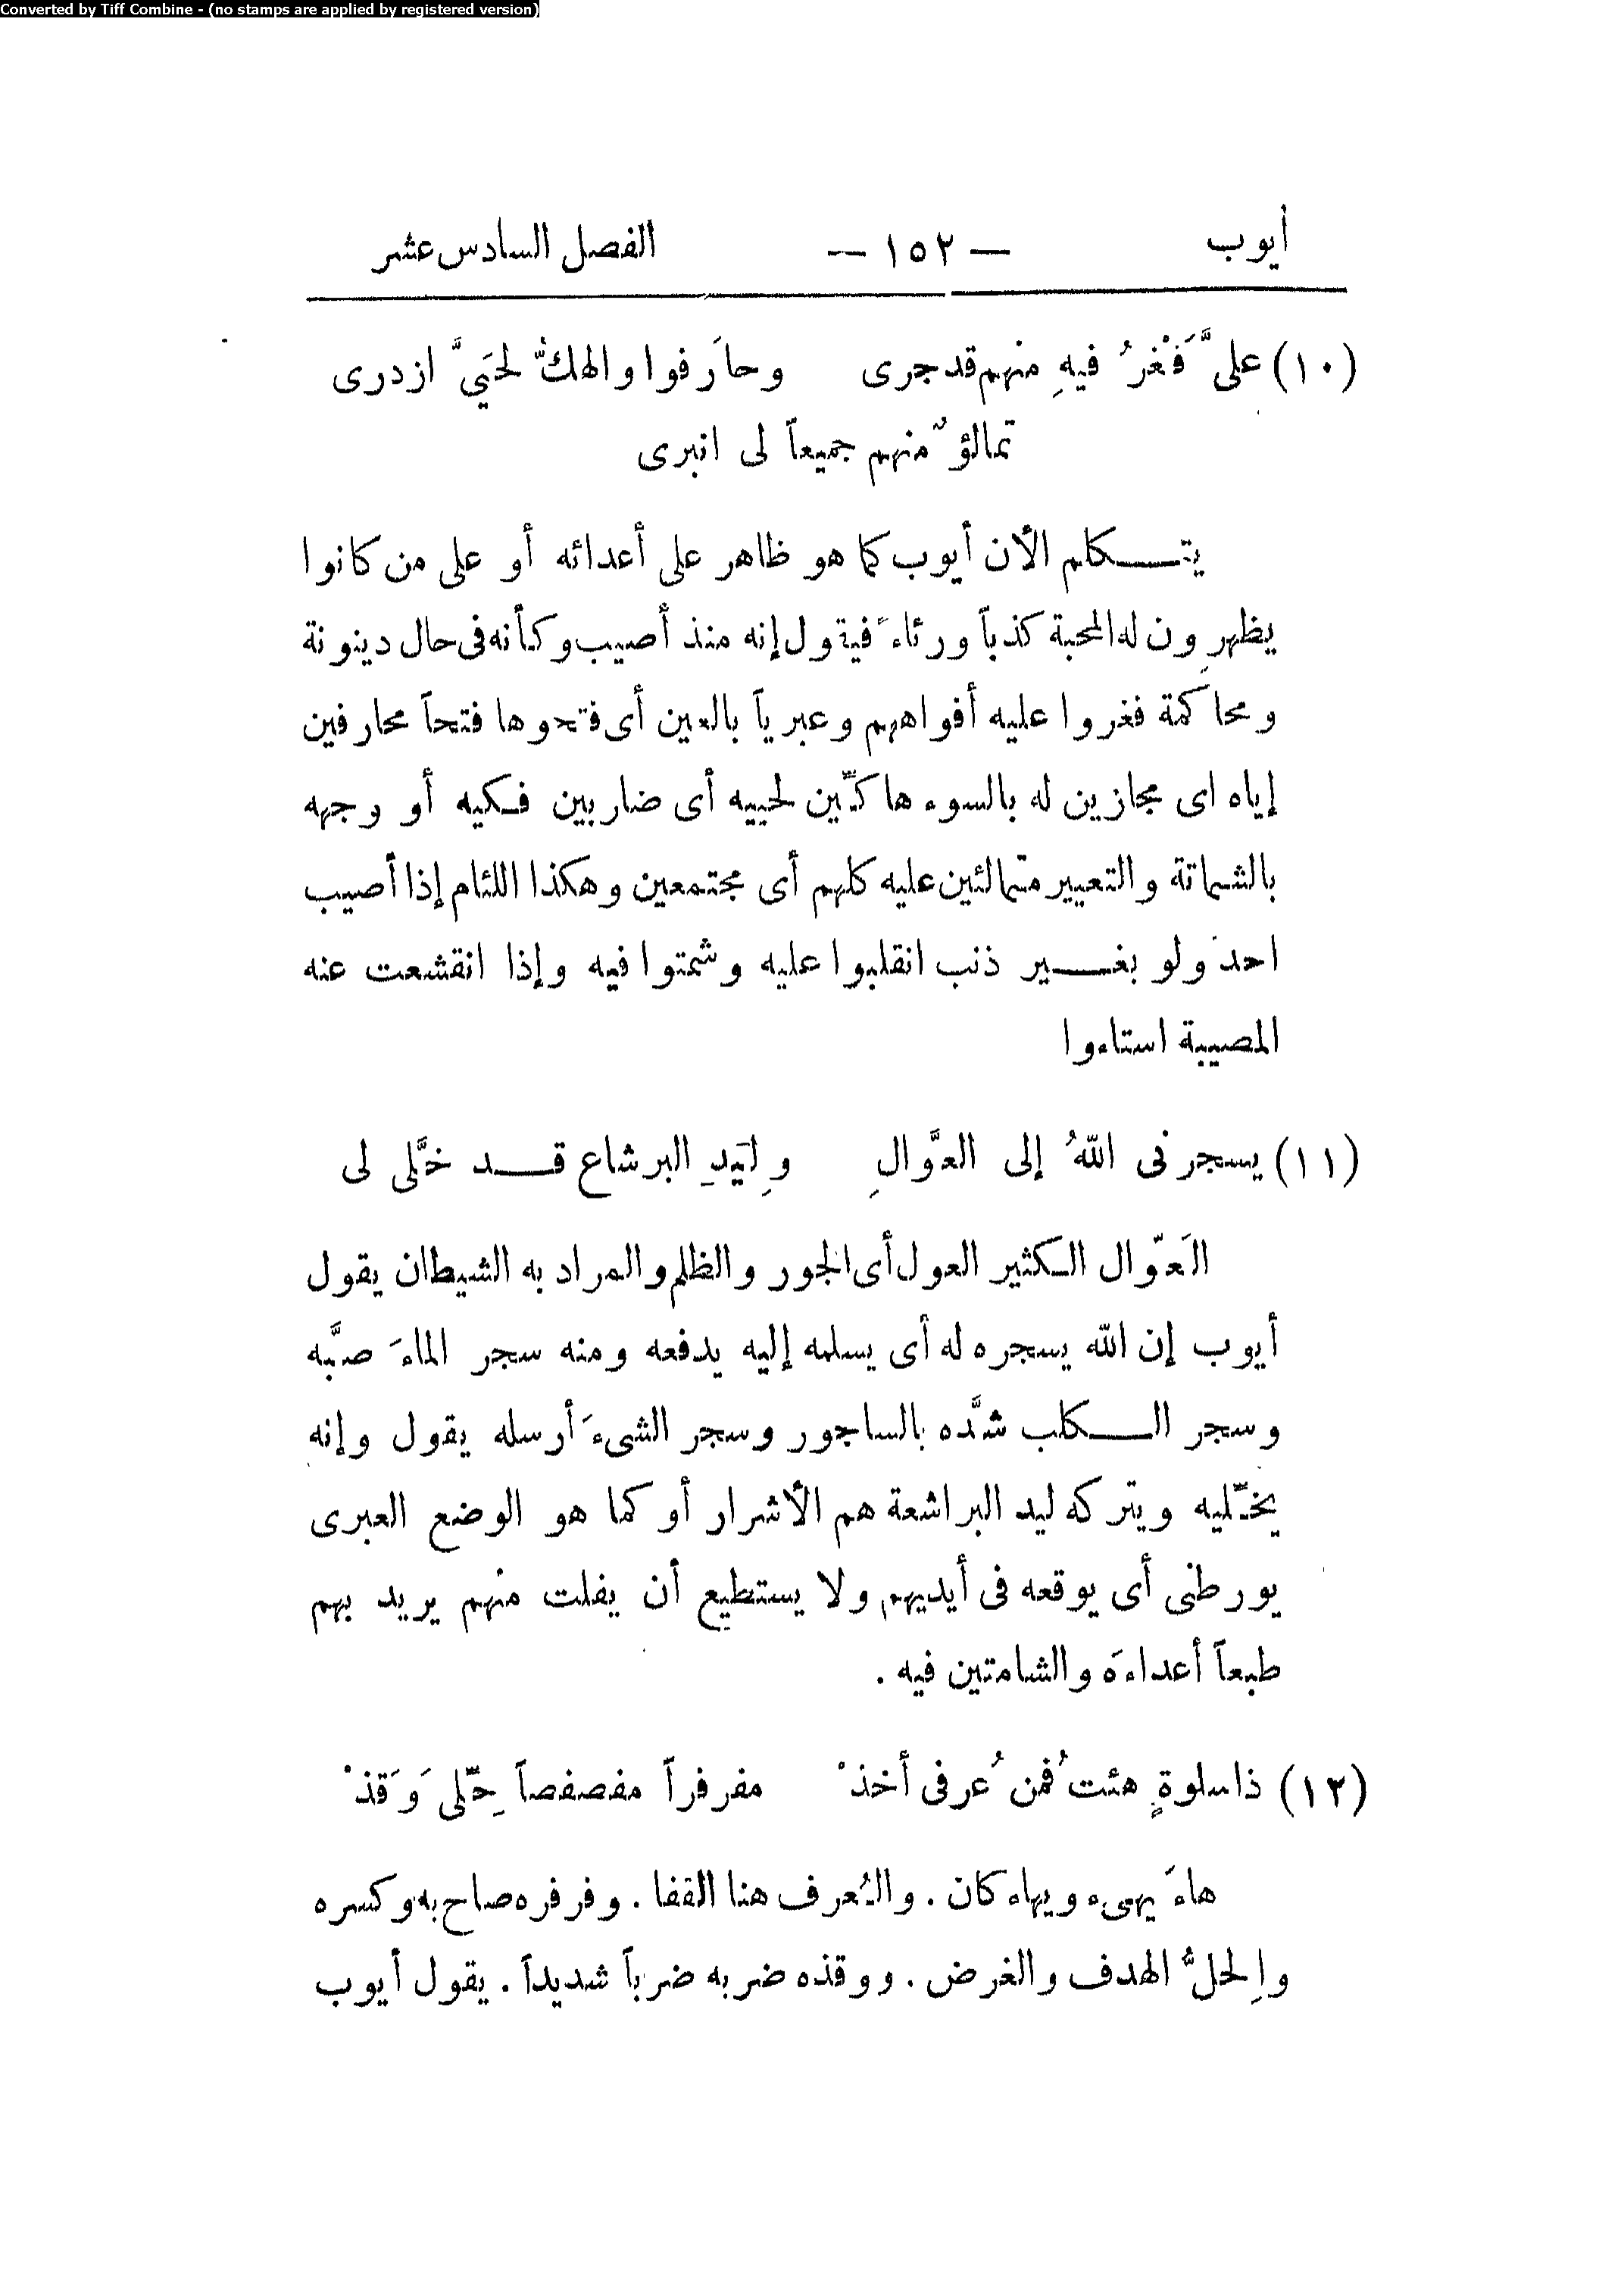 Converted by Tiff Combine - (no stamps are applied by registered version)
أيوب — ١٥٢ — الفصل السادس عشر
(١٠) علىَّ فَغْرُ فيهِ منهم قد جرى وحارَفوا والهكُّ لحَيىَّ ازدرى
تمالؤٌ منهم جميعاً لى انبرى
يتـكلم الأن أيوب كما هو ظاهر على أعدائه أو على من كانوا
يظهرون له المحبة كذباً ورئاءً فيقول إنه منذ أصيب وكأنه فى حال دينونة
ومحاكمة فغروا عليه أفواههم وعبرياً بالعين أى فتحوها فتحاً محارفين
إياه اى مجازين له بالسوء هاكّين لحييه أى ضاربين فـكيه أو وجهه
بالشماتة والتعيير متمالئين عليه كلهم أى مجتمعين وهكذا اللئام إذا أصيب
احد ولو بغـير ذنب انقلبوا عليه وشمتوا فيه وإذا انقشعت عنه
المصيبة استاءوا
(١١) يسجرنى اللّهُ إلى العوَّالِ ولِيَدِ البرشاع قـد خلَّى لى
العَوّال الـكثير العول أى الجور والظلم والمراد به الشيطان يقول
أيوب إن اللّه يسجره له أى يسلمه إليه يدفعه ومنه سجر الماءَ صبَّه
وسجر الـكلب شدَّه بالساجور وسجر الشىءَ أرسله يقول وإنه
يخلّيه ويتركه ليد البراشعة هم الأشرار أو كما هو الوضع العبرى
يورطنى أى يوقعه فى أيديهم ولا يستطيع أن يفلت منهم يريد بهم
طبعاً أعداءه والشامتين فيه .
(١٢) ذا سلوةٍ هئتُ فمن عُرفى أُخذْ مفرفراً مفصفصاً حِلّى وَقَذْ
هاءَ يهىء ويهاء كان . والعُرف هنا القفا . وفرفره صاح به وكسره
والحِلُّ الهدف والغرض . ووقذه ضربه ضرباً شديداً . يقول أيوب